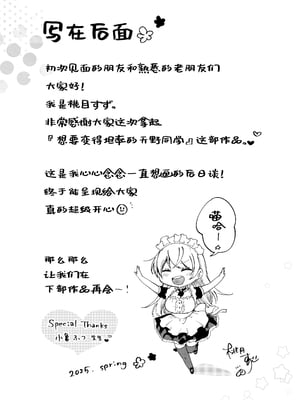 写在后面
初次见面的朋友和熟悉的老朋友们
大家好!
我是桃目すず。
非常感谢大家这次拿起
『想要变得坦率的天野同学』这部作品。
这是我心心念念一直想画的后日谈!
终于能呈现给大家
真的超级开心
那么那么
让我们在
下部作品再会ー!
喵哈ー。
Special Thanks
2025. spring